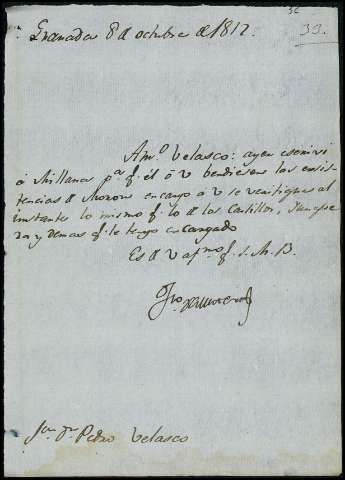 32
39.
Granada 8 d octubre de 1812.
Amº Velasco: ayer escriví
á Millanes pª q. él ó v bendiesen las exsis-
tencias d Moron encargo á v se verifique al
instante lo mismo q. lo d los Castillos, 
y demas q. le tengo encargado
Es d v afmo q. s. M. B.
Sor. Dn Pedro Velasco